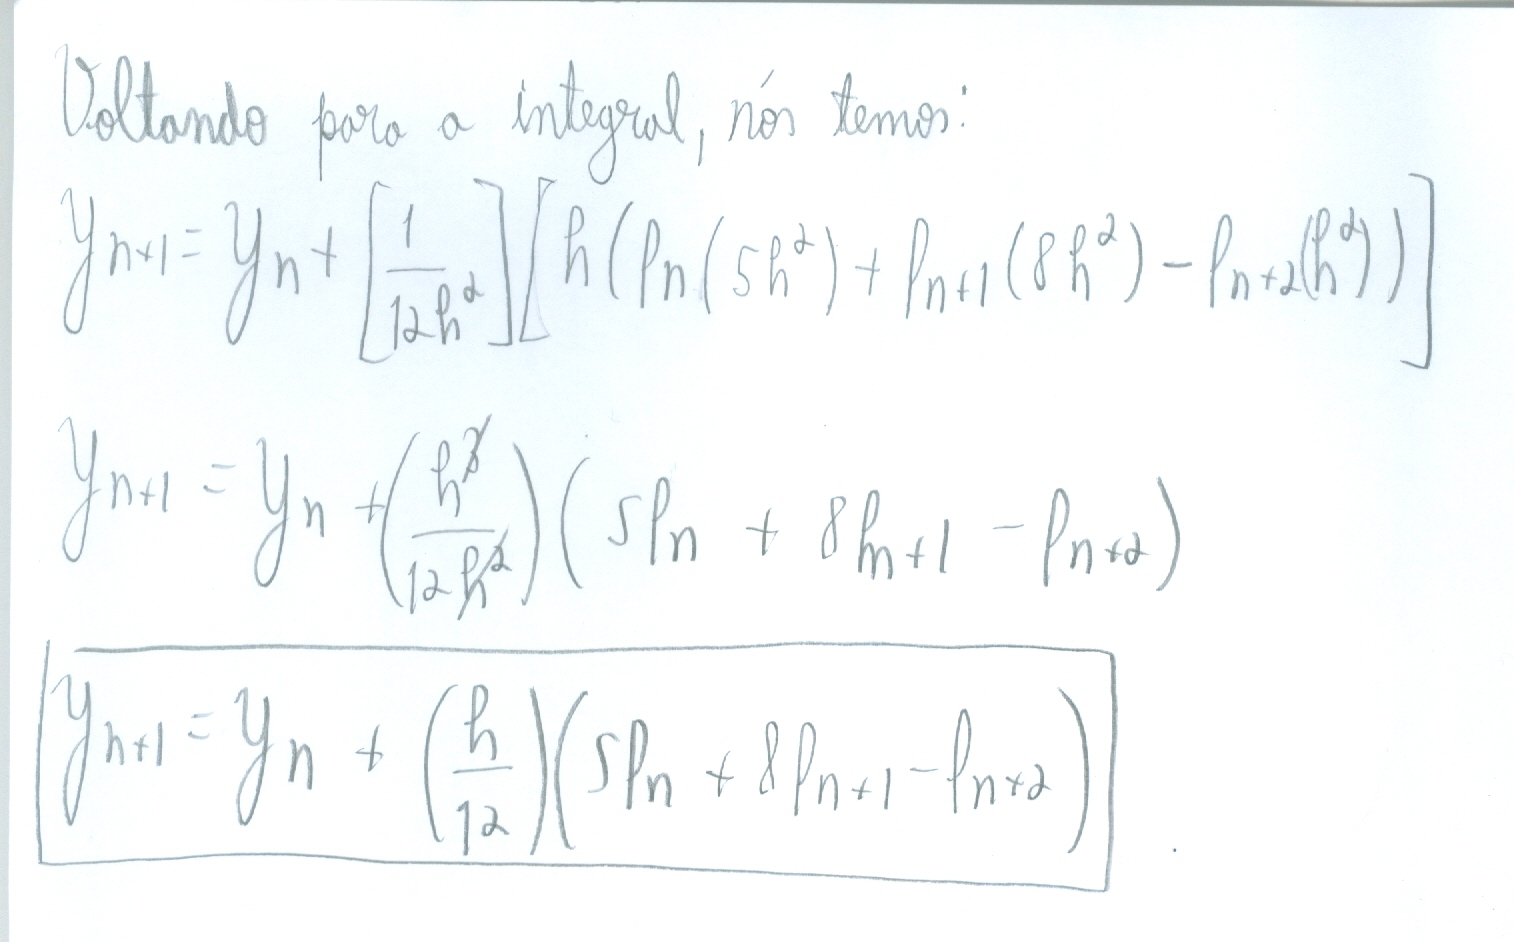 Voltando para a integral, nós temos:
y_{n+1} = y_n + [1/(12h^2)] [h(f_n(5h^2) + f_{n+1}(8h^2) - f_{n+2}(h^2))]
y_{n+1} = y_n + (h^3/(12h^2)) (5f_n + 8f_{n+1} - f_{n+2})
y_{n+1} = y_n + (h/12)(5f_n + 8f_{n+1} - f_{n+2})